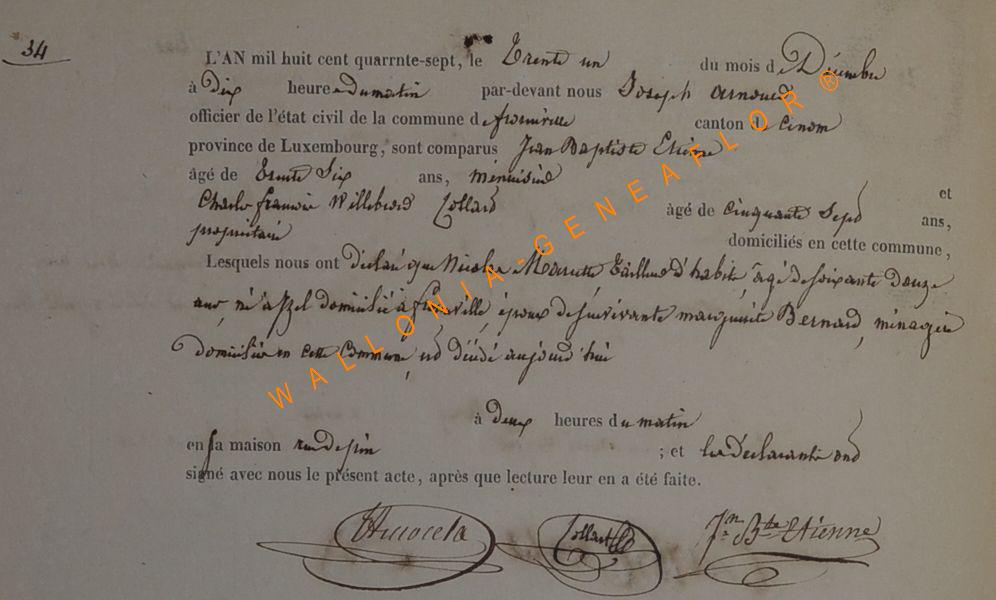 34
L'AN mil huit cent quarrnte-sept, le Trente un du mois de Décembre
à Dix heures du matin par-devant nous Joseph Arnould
officier de l'état civil de la commune de froinville canton de Cinom
province de Luxembourg, sont comparus Jean Baptiste Etienne
âgé de Trente Six ans, menuisier et
Charles francois Willebrord Collard âgé de cinquante Sept ans,
propriétaire domiciliés en cette commune,
Lesquels nous ont déclaré que Nicolas Marette Tailleur d'habits, âgé de soixante douze
ans, né à domicilié à époux de survivante marguerite Bernard, ménagère
domiciliée en cette Commune est décédé aujourd'hui
à Deux heures du matin
en sa maison ; et les Declarants ont
signé avec nous le présent acte, après que lecture leur en a été faite.
Collard Jn Bte Etienne
WALLONIA-GENEAFLOR®